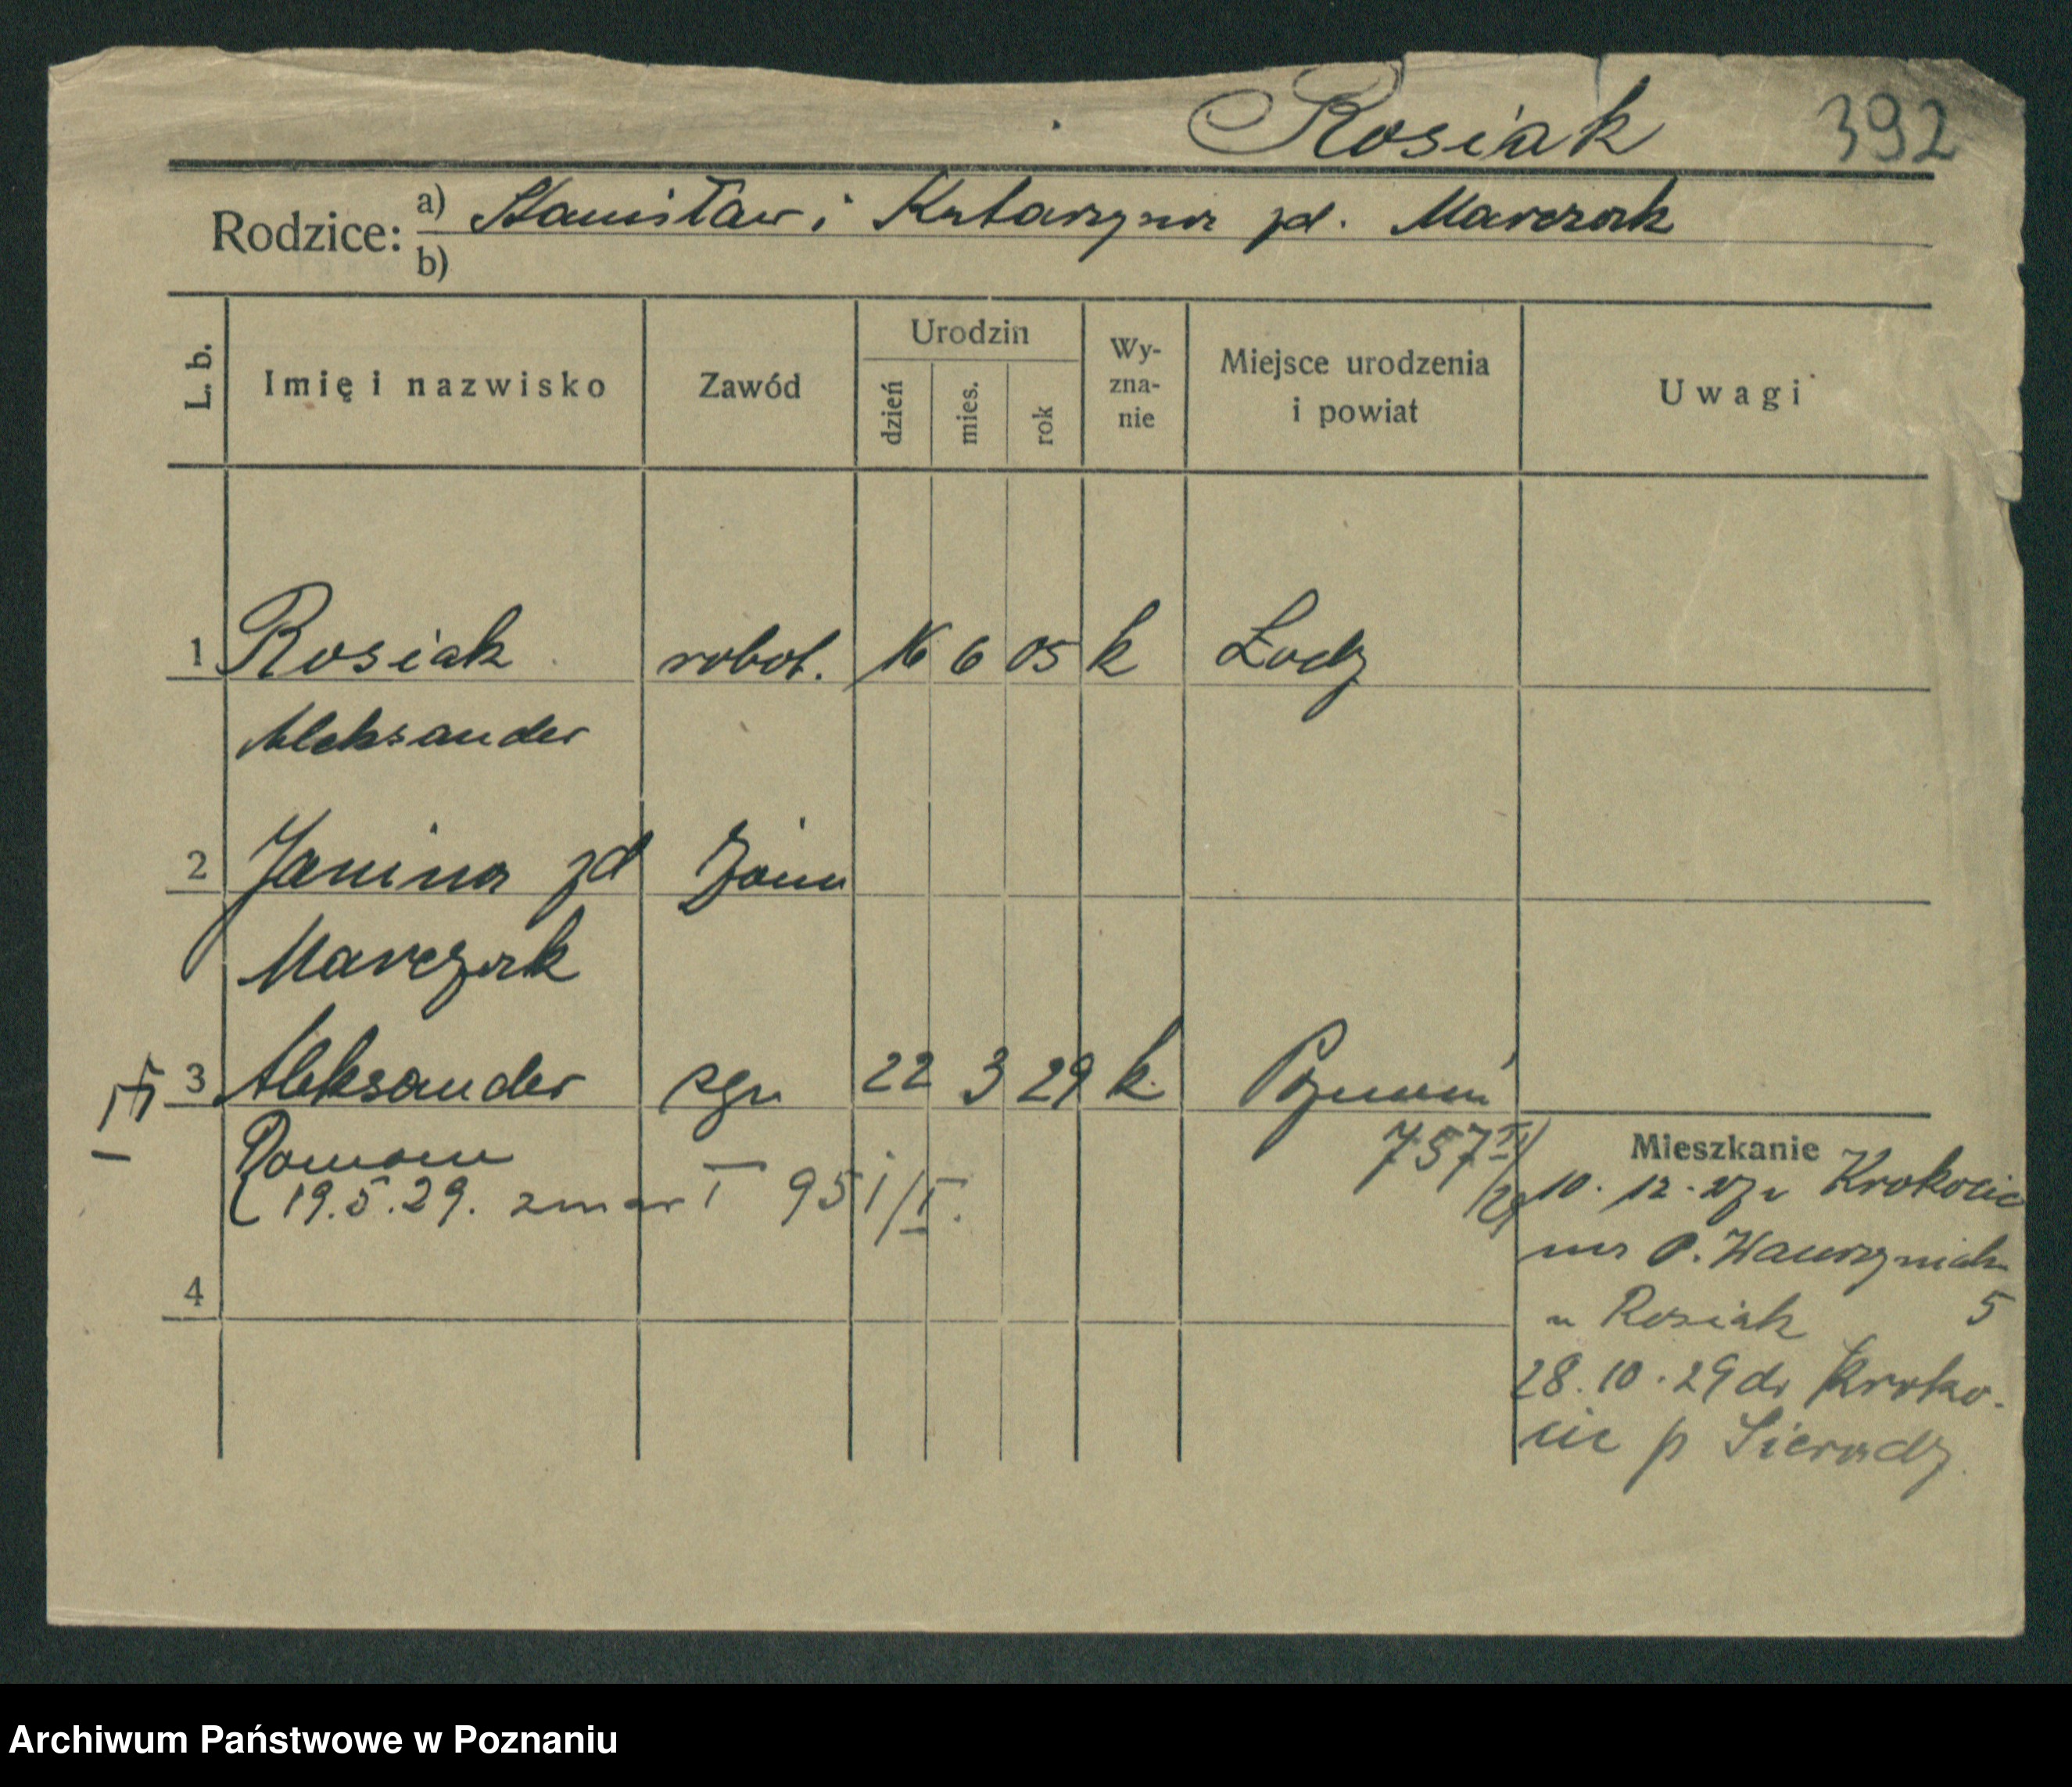 Rosiak 392
Rodzice: a) Stanisław i Katarzyna zd. Marczak
b)
L. b. Imię i nazwisko Zawód Urodzin dzień mies. rok Wy-zna-nie Miejsce urodzenia i powiat Uwagi
1 Rosiak robot. 16 6 05 k Łodz
Aleksander
2 Janina zd żona
Marczak
3 Aleksander syn 22 3 29 k. Poznań
Roman 757
19.5.29. zmarł 951/I.
Mieszkanie
10. 12. Krokocic
P. Wawrzyniaka
u Rosiak 5
28.10.29 do Kroko-
cic p Sieradz
4
Archiwum Państwowe w Poznaniu